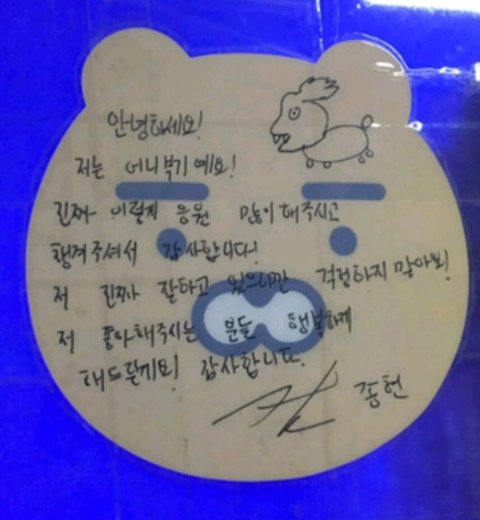 안녕하세요!
저는 어니부기예요!
진짜 이렇게 응원 많이 해주시고
챙겨주셔서 감사합니다!
저 진짜 잘하고 있으니깐 걱정하지 말아요!
저 좋아해주시는 분들 행복하게
해드릴게요! 감사합니다.
종현